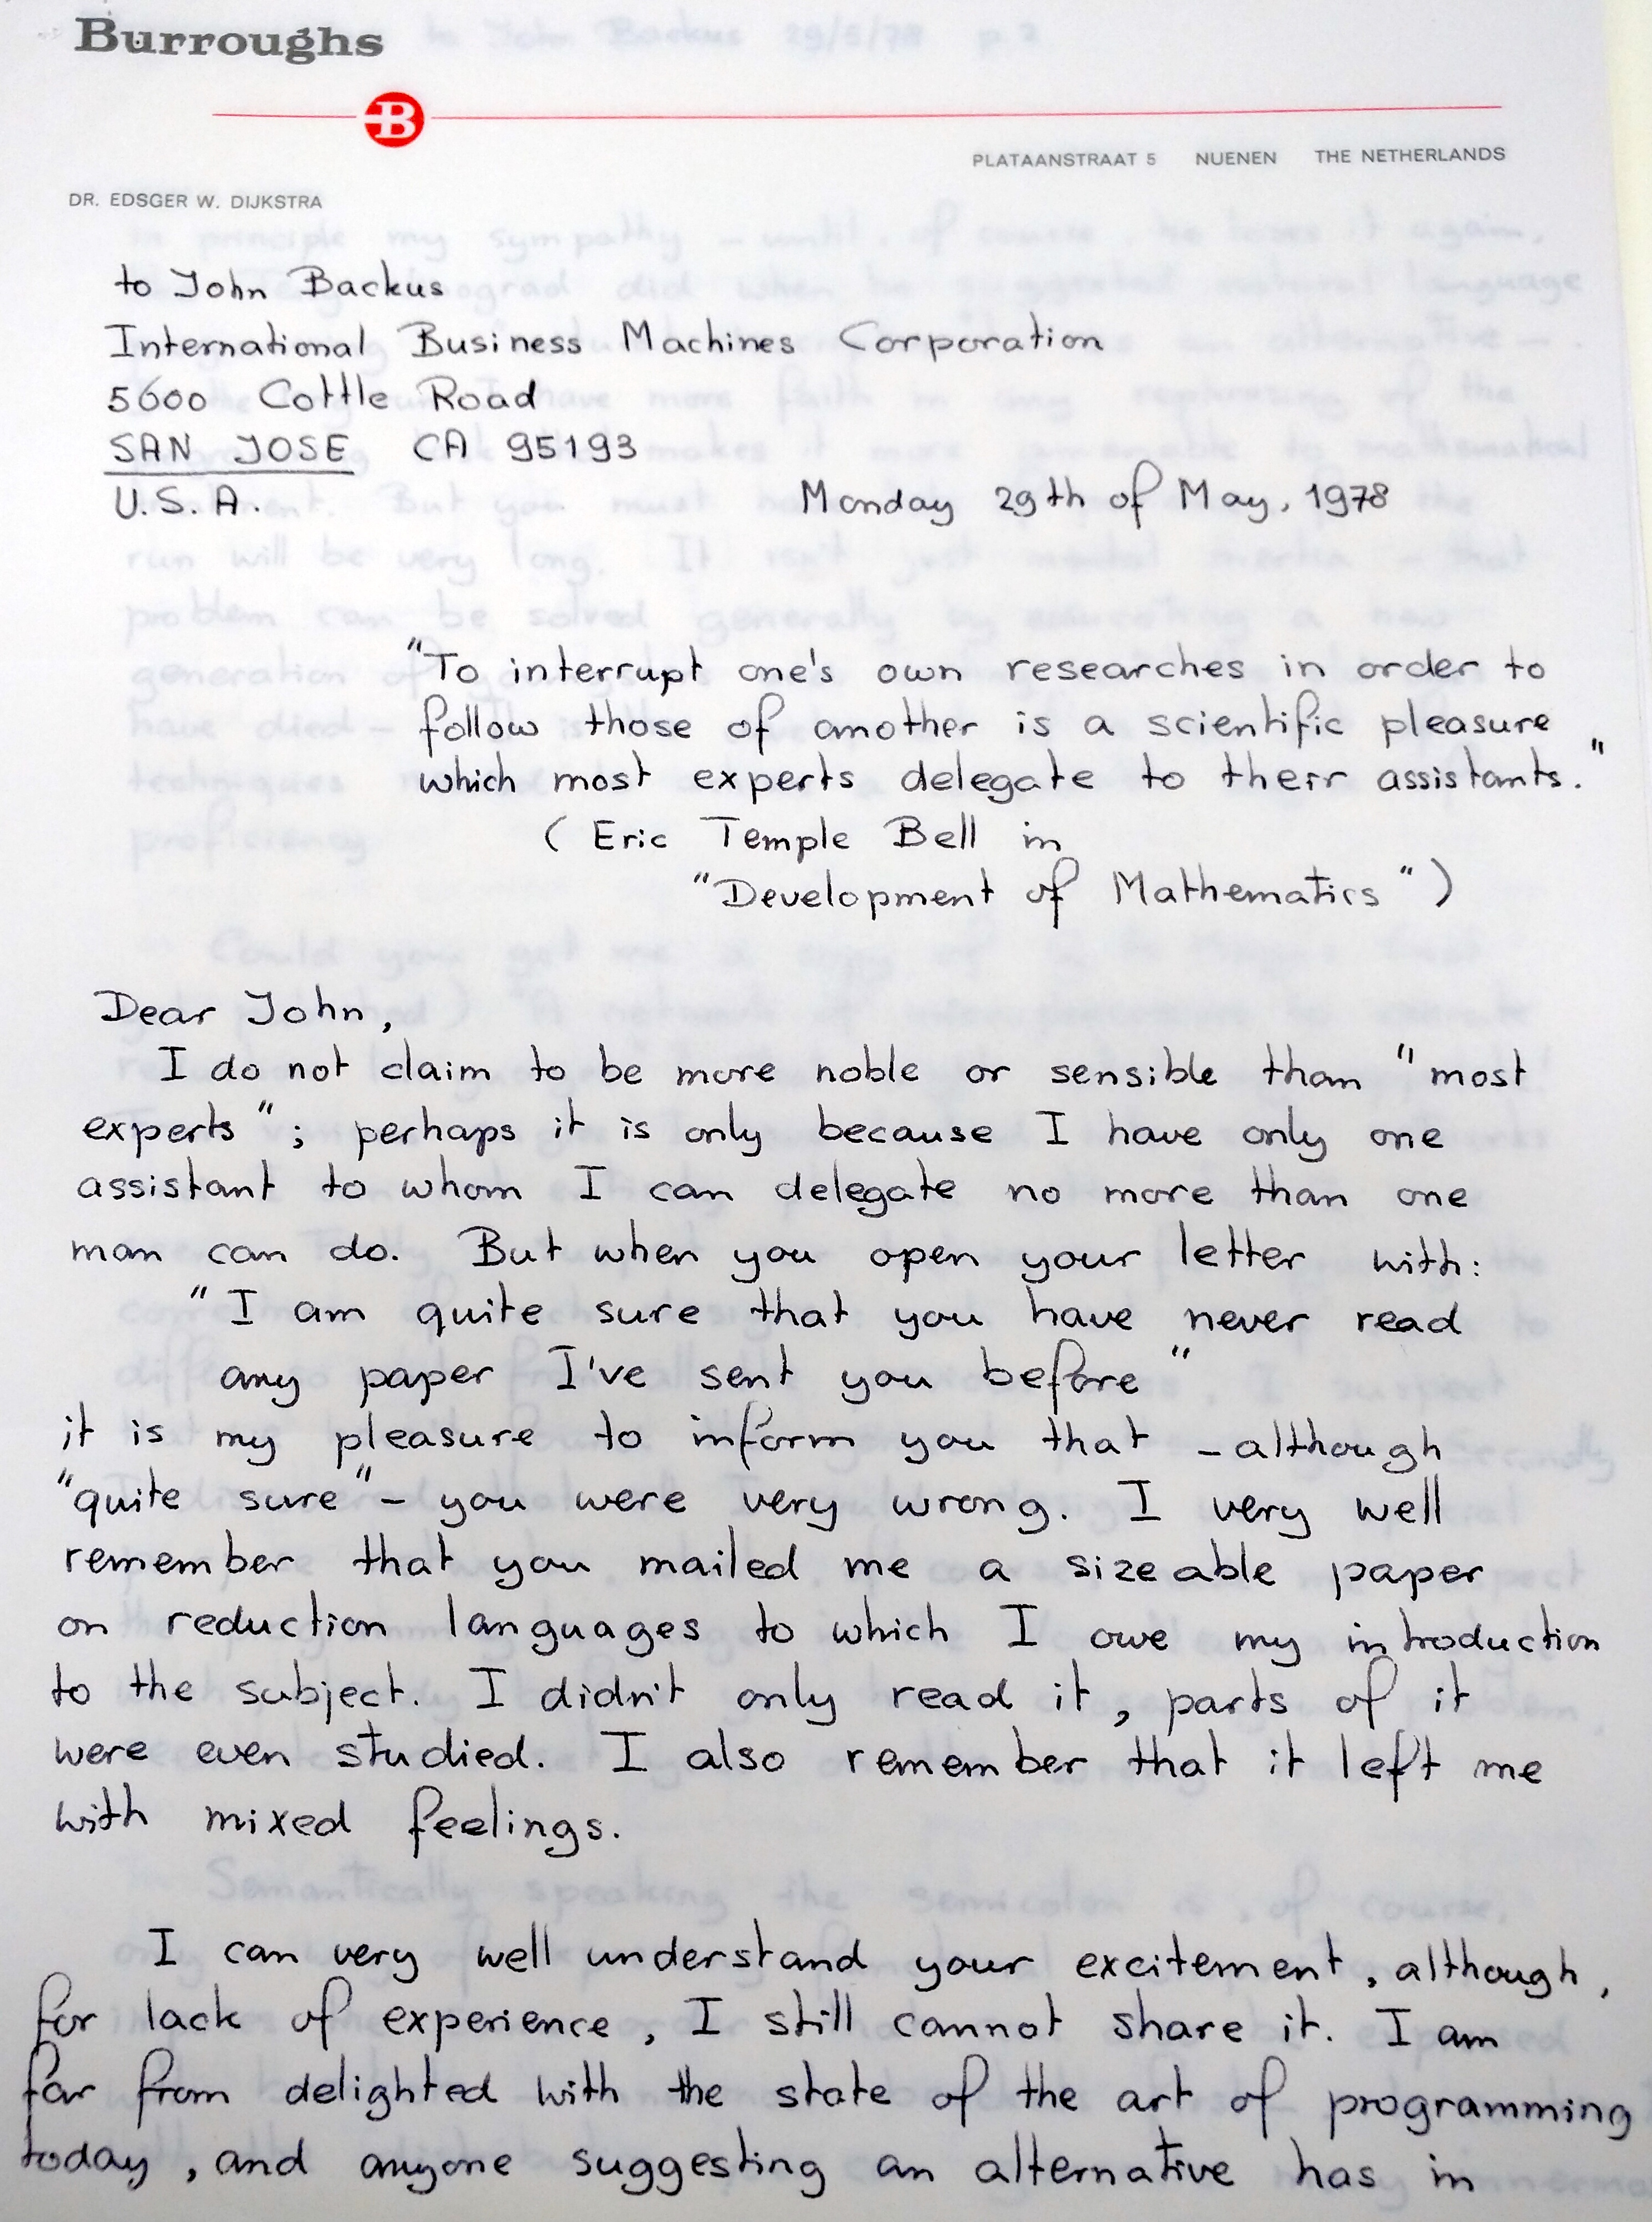 Burroughs
B
PLATAANSTRAAT 5 NUENEN THE NETHERLANDS
DR. EDSGER W. DIJKSTRA
to John Backus
International Business Machines Corporation
5600 Cottle Road
SAN JOSE CA 95193
U.S.A.
Monday 29th of May, 1978
"To interrupt one's own researches in order to
follow those of another is a scientific pleasure
which most experts delegate to their assistants."
(Eric Temple Bell in
"Development of Mathematics")
Dear John,
I do not claim to be more noble or sensible than "most
experts"; perhaps it is only because I have only one
assistant to whom I can delegate no more than one
man can do. But when you open your letter with:
"I am quite sure that you have never read
any paper I've sent you before"
it is my pleasure to inform you that - although
"quite sure" - you were very wrong. I very well
remember that you mailed me a sizeable paper
on reduction languages to which I owe my introduction
to the subject. I didn't only read it, parts of it
were even studied. I also remember that it left me
with mixed feelings.
I can very well understand your excitement, although,
for lack of experience, I still cannot share it. I am
far from delighted with the state of the art of programming
today, and anyone suggesting an alternative has in